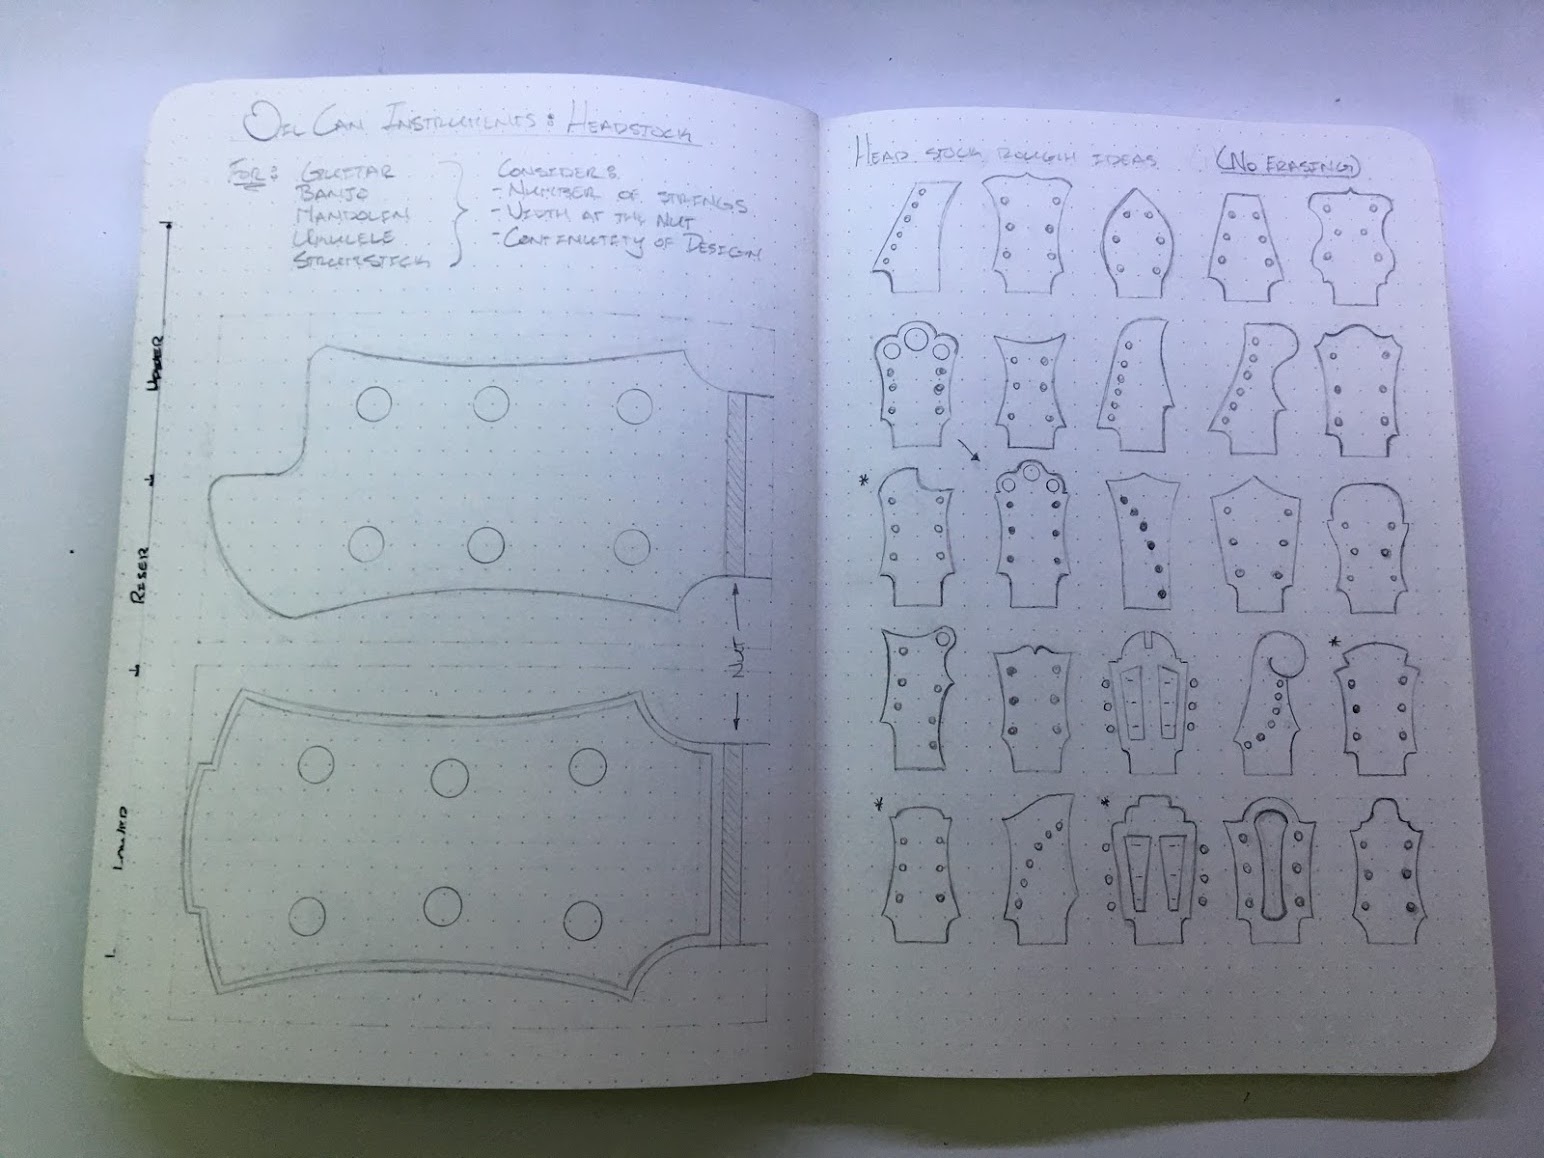 OIL CAN INSTRUMENTS: HEADSTOCK
FOR: GUITAR
BANJO
MANDOLIN
UKULELE
STRUMSTICK
CONSIDER:
- NUMBER OF STRINGS
- WIDTH AT THE NUT
- CONTINUITY OF DESIGN
RISER
NUT
HEAD STOCK ROUGH IDEAS (NO ERASING)